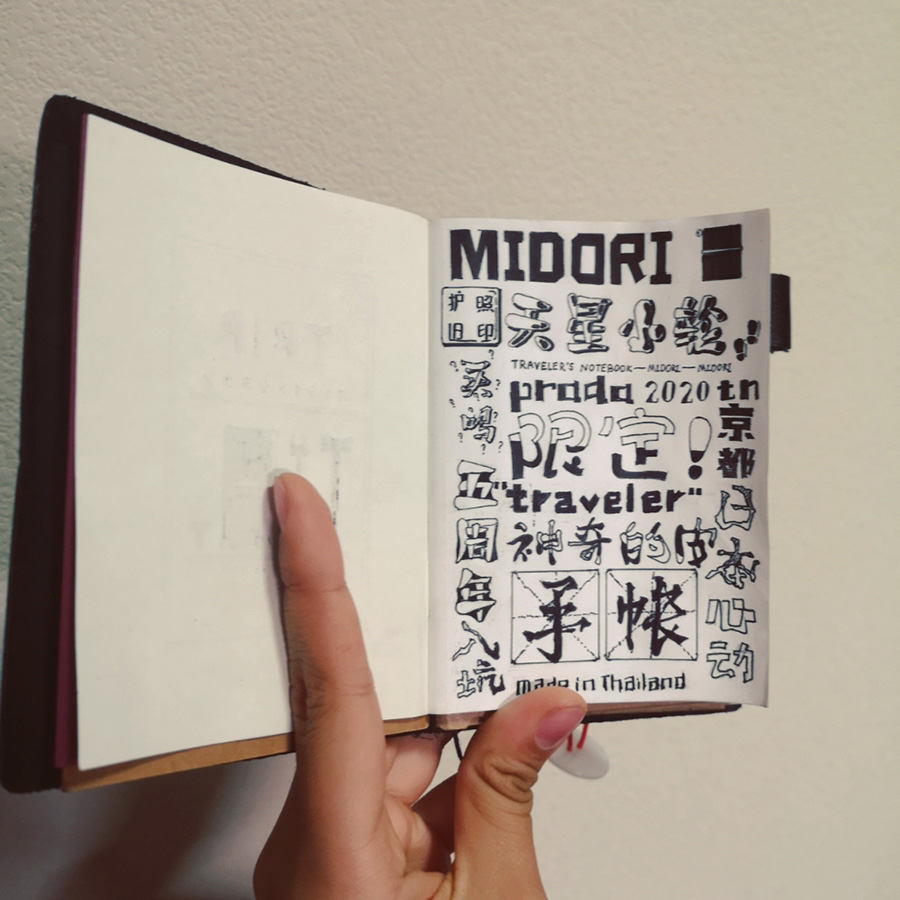 MIDORI
护照
旧印
天星小轮
TRAVELER'S NOTEBOOK—MIDORI—MIDORI
prada 2020 tn
限定!
"traveler"
神奇的皮
手帐
made in Thailand
买吗
五周年入坑
京都
日本
心动